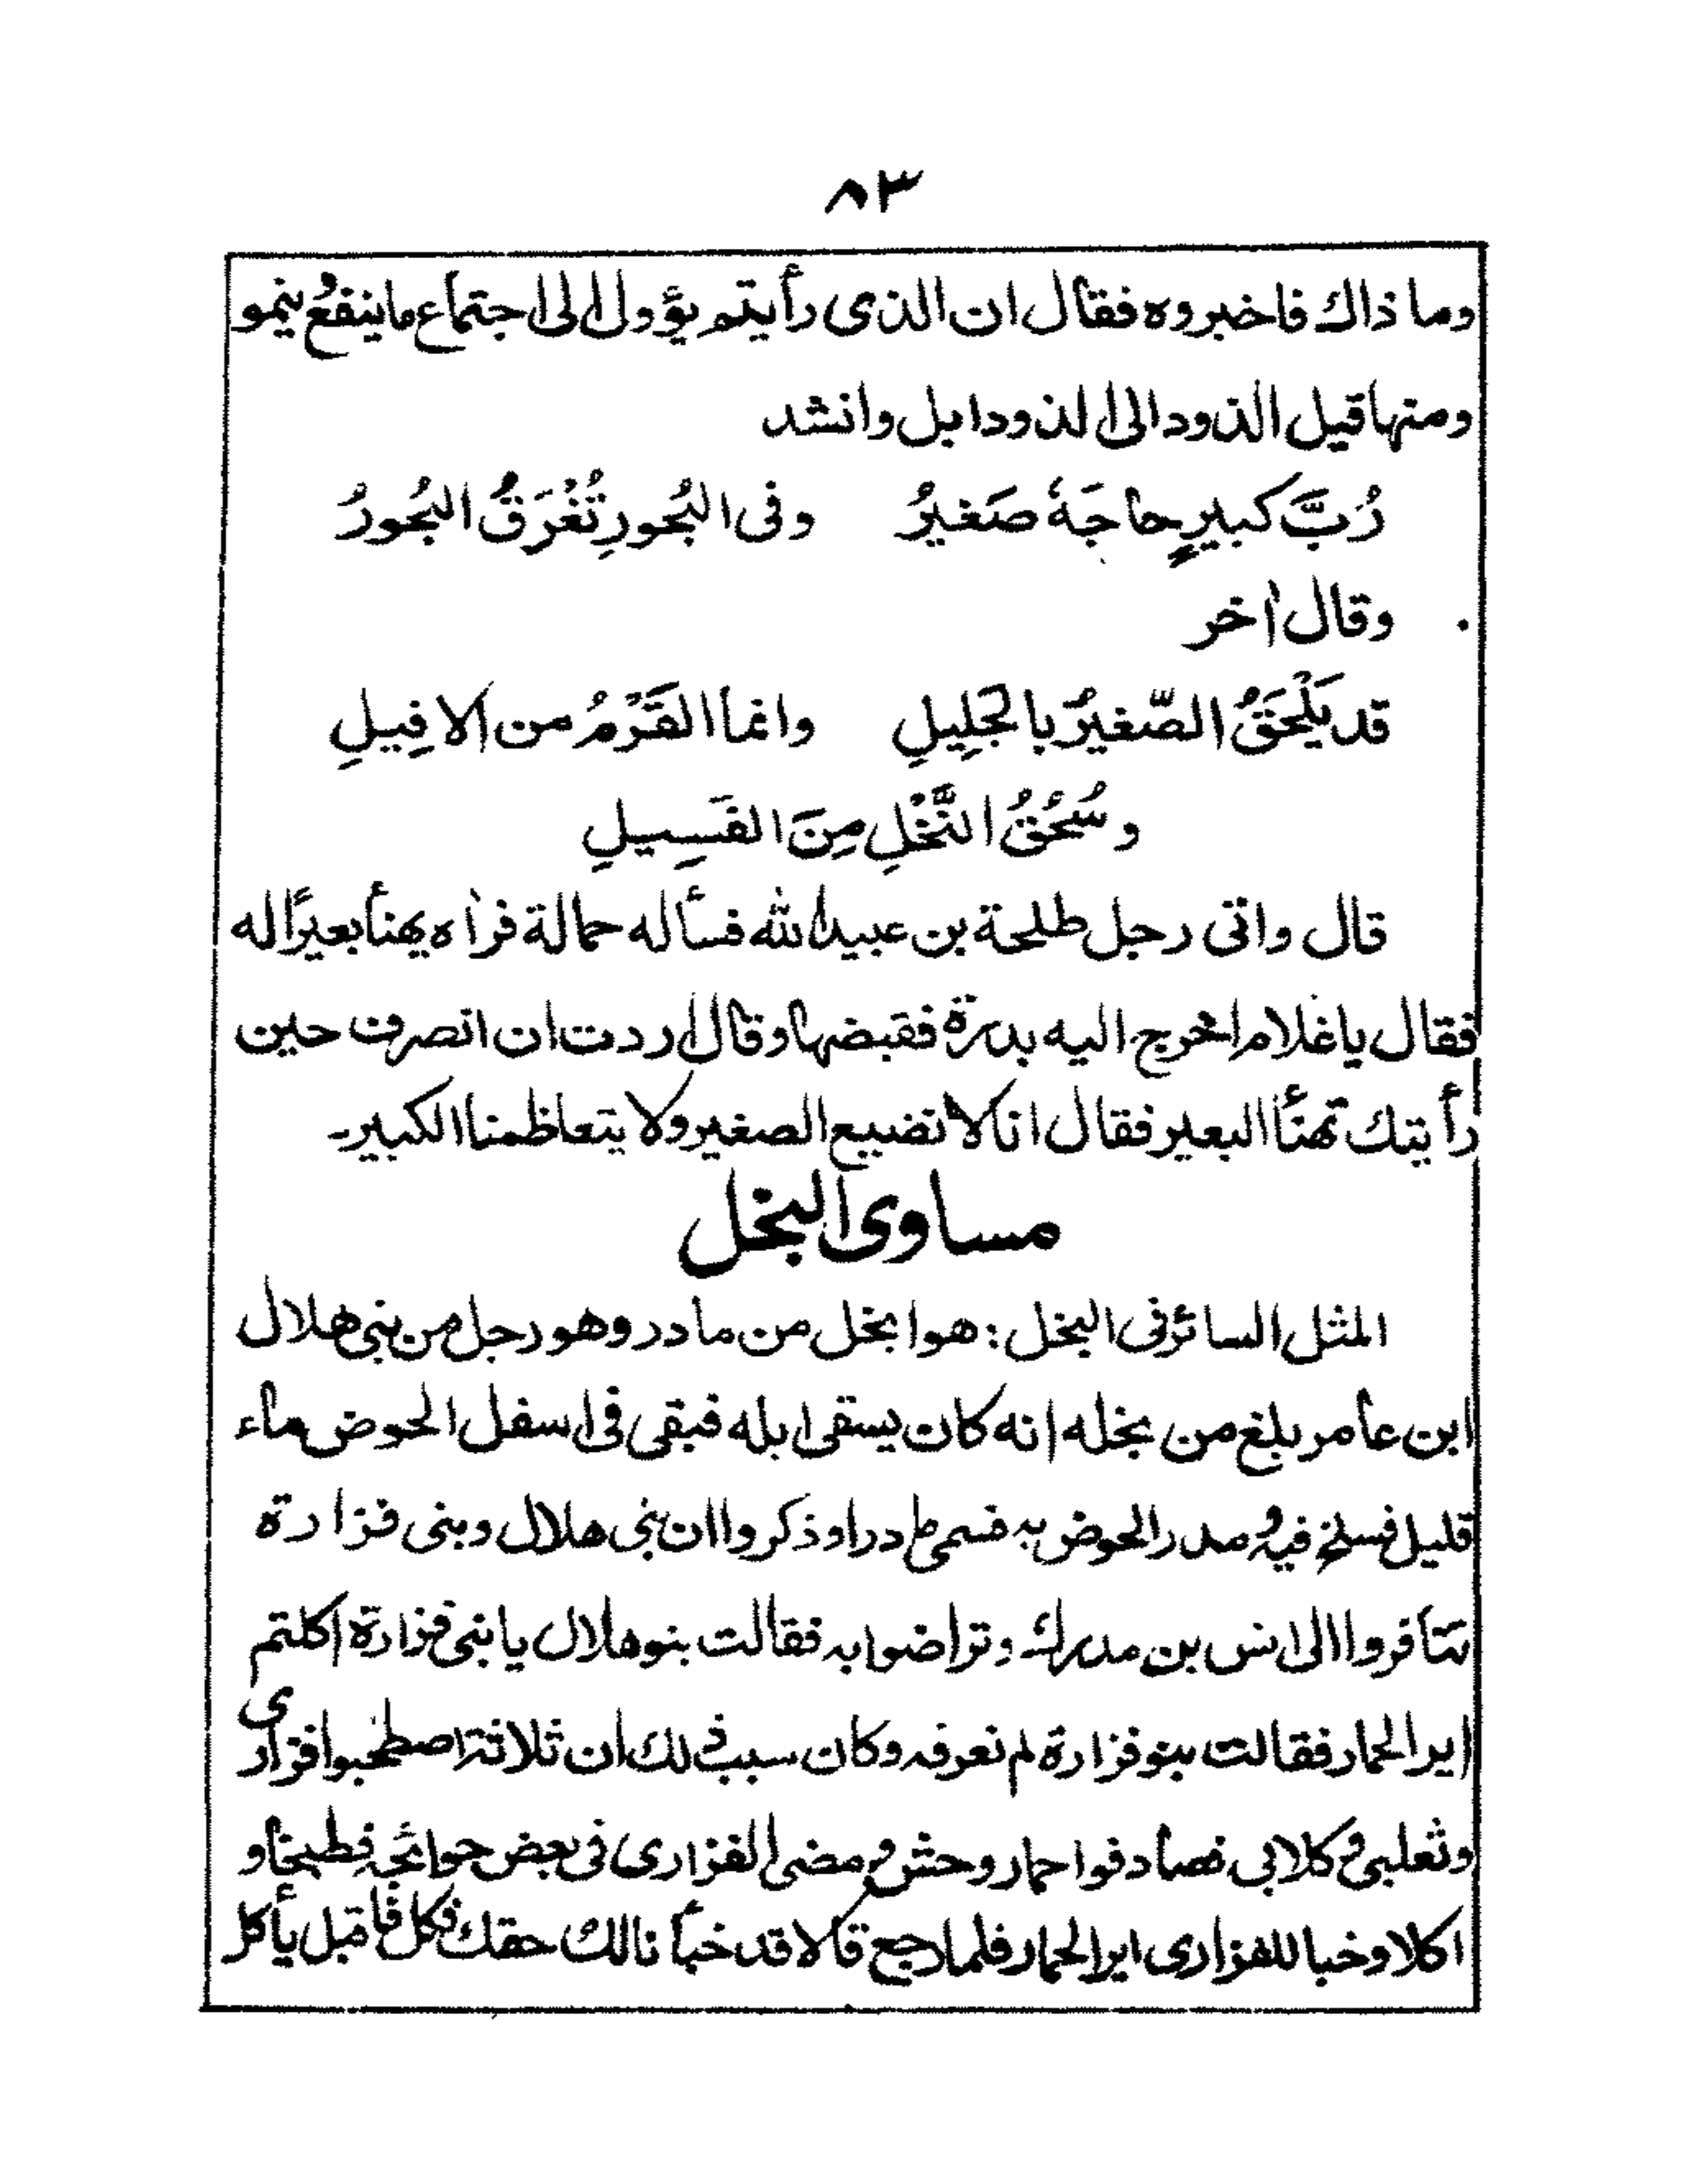 ٨٣
وما ذاك فاخبروه فقال ان الذى رأيتم يؤول الى اجتماع ما ينفعُ ينمو
ومنها قيل الذود الى الذود ابل وانشد
رُبَّ كبيرٍ حاجَهٗ صَغيرُ وفى البُحورِ تُغْرَقُ البُحورُ
وقال اٰخر
قد يَلْحَقُ الصّغيرُ بالجَلِيلِ وانما القَرْمُ من الافِيلِ
وسُحُقُ النَّخْلِ مِنَ الفَسِيلِ
قال واتى رجل طلحة بن عبيد الله فسأله حمالة فراٰه يهنأ بعيرًا له
فقال يا غلام اخرج اليه بدرة فقبضها وقال اردت ان انصرف حين
رأيتك تهنأ البعير فقال انا لا نضيع الصغير ولا يتعاظمنا الكبير۔
مساوى البخل
المثل السائر فى البخل : هو ابخل من مادر وهو رجل من بنى هلال
ابن عامر بلغ من بخله انه كان يسقى ابله فبقى فى اسفل الحوض ماء
قليل فسلخ فيه و مدر الحوض به فسمى مادرا وذكروا ان بنى هلال وبنى فزارة
تنافروا الى انس بن مدرك وتراضوا به فقالت بنو هلال يا بنى فزارة اكلتم
اير الحمار فقالت بنو فزارة لم نعرفه وكان سبب ذلك ان ثلاثة اصطحبوا فزارى
وثعلبى و كلابى فصادفوا حمار وحش و مضى الفزارى فى بعض حوائجه فطبخا و
اكلا وخبا للفزارى اير الحمار فلما رجع قالا قد خبأنا لك حقك فكل فاقبل يأكل